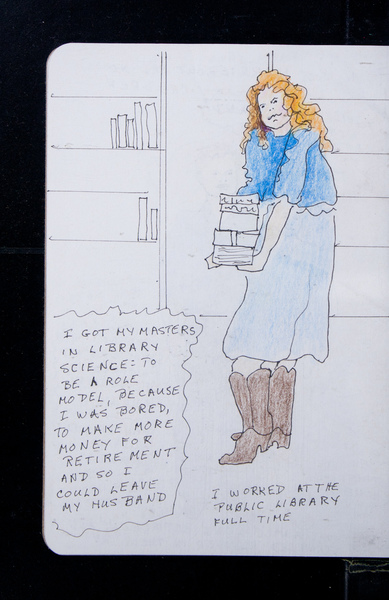 I GOT MY MASTERS
IN LIBRARY
SCIENCE: TO
BE A ROLE
MODEL, BECAUSE
I WAS BORED,
TO MAKE MORE
MONEY FOR
RETIREMENT
AND SO I
COULD LEAVE
MY HUSBAND
I WORKED AT THE
PUBLIC LIBRARY
FULL TIME